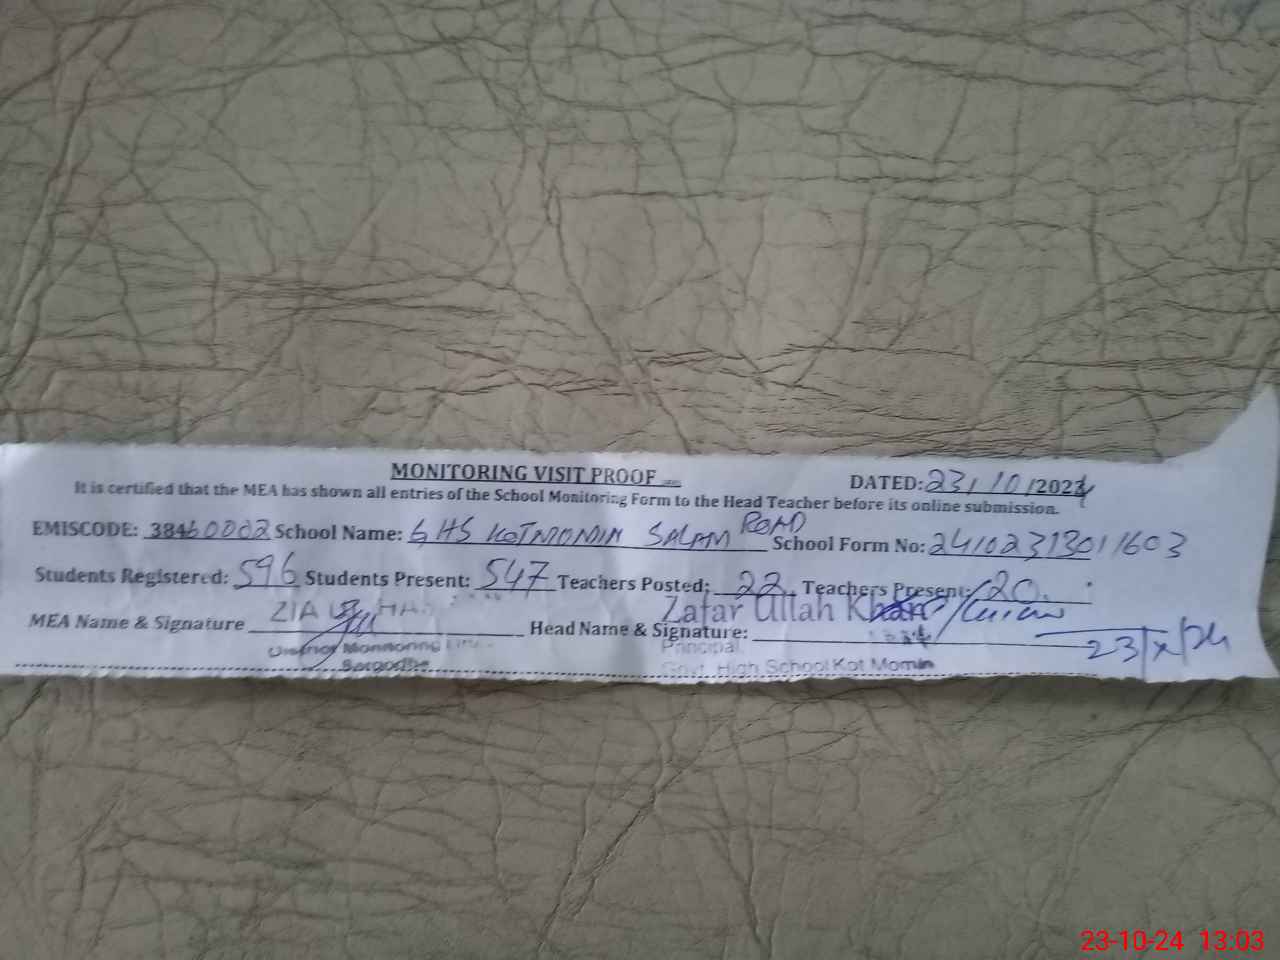 MONITORING VISIT PROOF
DATED: 23/10/2024
It is certified that the MEA has shown all entries of the School Monitoring Form to the Head Teacher before its online submission.
EMISCODE: 38460002 School Name: GHS KOTMOMIN SALAM ROAD School Form No: 24102313011603
Students Registered: 596 Students Present: 547 Teachers Posted: 22 Teachers Present: 20
MEA Name & Signature ZIA Head Name & Signature: Zafar Ullah Khan 23/X/24
District Monitoring Principal
Sargodha Govt. High School Kot Momin
23-10-24 13:03